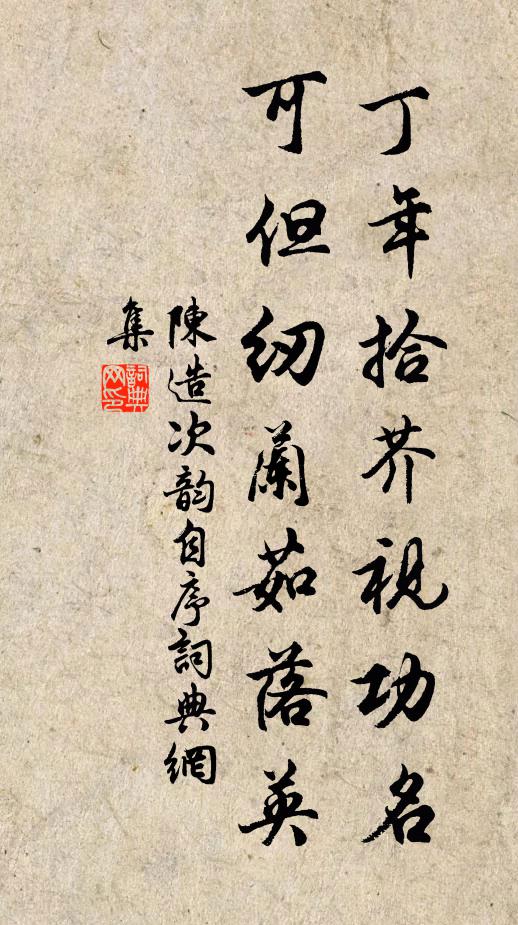 丁年拾芥視功名
可但纫蘭茹落英
陳造次韵自序詞典網
集
詞典
网印